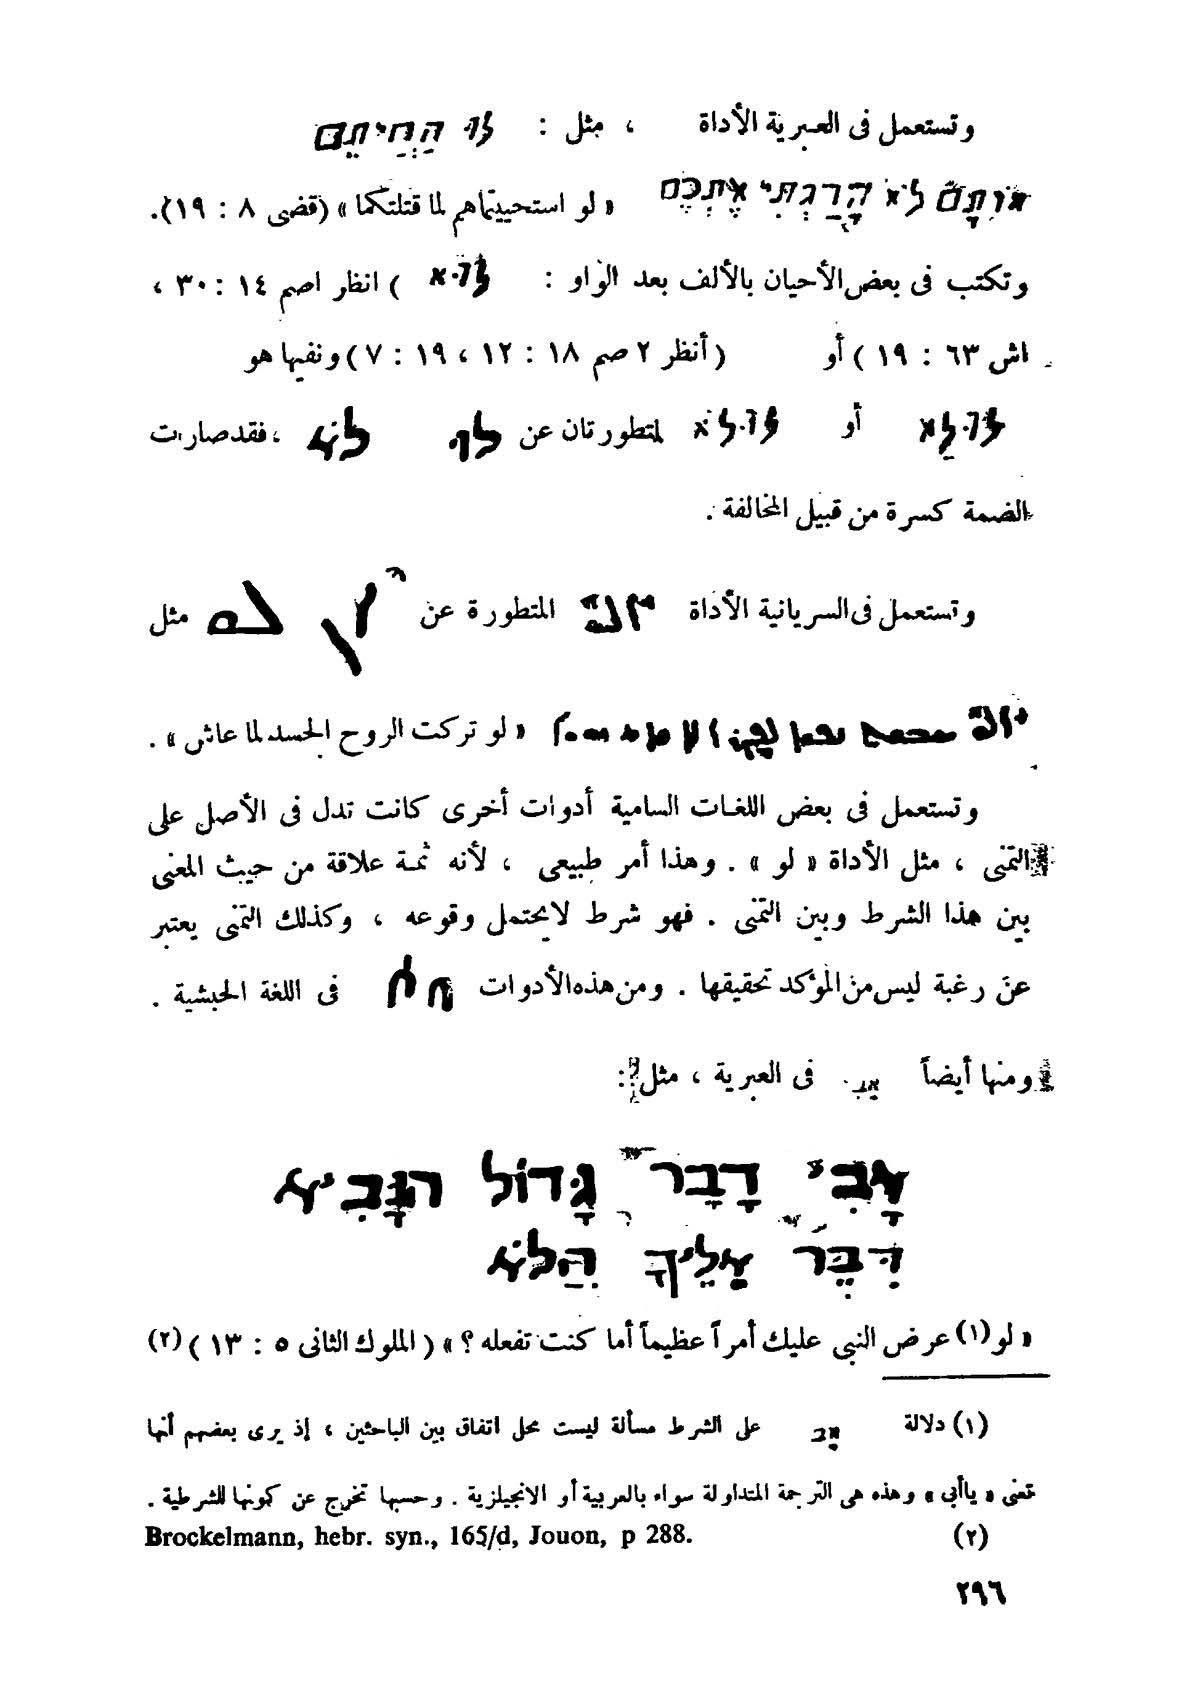 وتستعمل فى العبرية الأداة ، مثل : לוּ הַחֲיִתֶם
אוֹתָם לֹא הָרַגְתִּי אֶתְכֶם « لو استحييتماهم لما قتلتكما » (قضى ٨ : ١٩).
وتكتب فى بعض الأحيان بالألف بعد الواو : לוּא ) انظر اصم ١٤ : ٣٠ ،
اش ٦٣ : ١٩ ) أو ( أنظر ٢ صم ١٨ : ١٢ ، ١٩ : ٧ ) ونفيها هو
לוּלֵא أو לוּלֹא المتطورتان عن לוּ לֹא ، فقد صارت
الضمة كسرة من قبيل المخالفة .
وتستعمل فى السريانية الأداة المتطورة عن مثل
« لو تركت الروح الجسد لما عاش » .
وتستعمل فى بعض اللغات السامية أدوات أخرى كانت تدل فى الأصل على
التمنى ، مثل الأداة « لو » . وهذا أمر طبيعى ، لأنه ثمة علاقة من حيث المعنى
بين هذا الشرط وبين التمنى . فهو شرط لا يحتمل وقوعه ، وكذلك التمنى يعتبر
عن رغبة ليس من المؤكد تحقيقها . ومن هذه الأدوات فى اللغة الحبشية .
ومنها أيضاً فى العبرية ، مثل :
אָבִי דָּבָר גָּדוֹל הַנָּבִיא
דִּבֶּר אֵלֶיךָ הֲלֹא
« لو (١) عرض النبى عليك أمراً عظيماً أما كنت تفعله ؟ » ( الملوك الثانى ٥ : ١٣ ) (٢)
(١) دلالة على الشرط مسألة ليست محل اتفاق بين الباحثين ، إذ يرى بعضهم أنها
تعنى « ياأبى » وهذه هى الترجمة المتداولة سواء بالعربية أو الانجليزية . وحسبها تخرج عن كونها للشرطية .
(٢) Brockelmann, hebr. syn., 165/d, Jouon, p 288.
٢٩٦